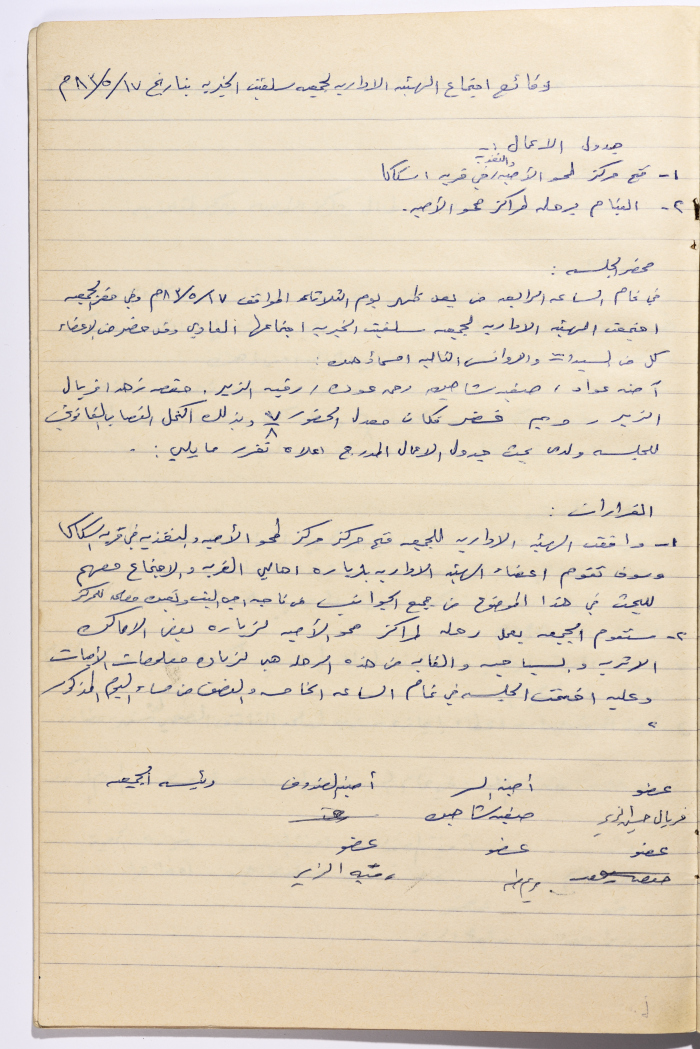 وقائع اجتماع الهيئه الاداريه لجمعيه سلفيت الخيريه بتاريخ ١٧/٥/٨٣م
جدول الاعمال :-
١- فتح مركز لمحو الأميه والتغذيه في قريه اسكاكا
٢- القيام برحله لمراكز محو الأميه.
محضر الجلسه :
في تمام الساعه الرابعه من بعد ظهر يوم الثلاثاء الموافق ١٧/٥/٨٣م وفي مقر الجمعيه
اجتمعت الهيئه الاداريه لجمعيه سلفيت الخيريه اجتماعها العادي وقد حضر من الاعضاء
كل من السيدات والاوانس التاليه اسمائهن :
آمنه عواد ، صفيه شاهين رحمه عوده ، رقيه الزير . حفصه زهد فريال
الزير ، و مريم خضر فكان معدل الحضور ٧/٨ وبذلك اكتمل النصاب القانوني
للجلسه ولدى بحث جدول الاعمال المدرج اعلاه تقرر ما يلي : .
القرارات :
١- وافقت الهيئه الاداريه للجمعيه فتح مركز مركز لمحو الأميه والتغذيه في قريه اسكاكا
وسوف تقوم اعضاء الهيئه الاداريه بزياره اهالي القريه والاجتماع معهم
للبحث في هذا الموضوع من جميع الجوانب من ناحيه البيت وتعيين معلمه للمركز
٢- ستقوم الجمعيه بعمل رحله لمراكز محو الأميه لزياره بعض الاماكن
الاثريه والسياحيه والغايه من هذه الرحله هي لزياده معلومات الأميات
وعليه اختتمت الجلسه في تمام الساعه الخامسه والنصف من مساء اليوم المذكور
عضو أمينه السر أمينه الصندوق رئيسه الجمعيه
فريال الزير صفيه شاهين
عضو عضو عضو
حفصه زهد رقيه الزير